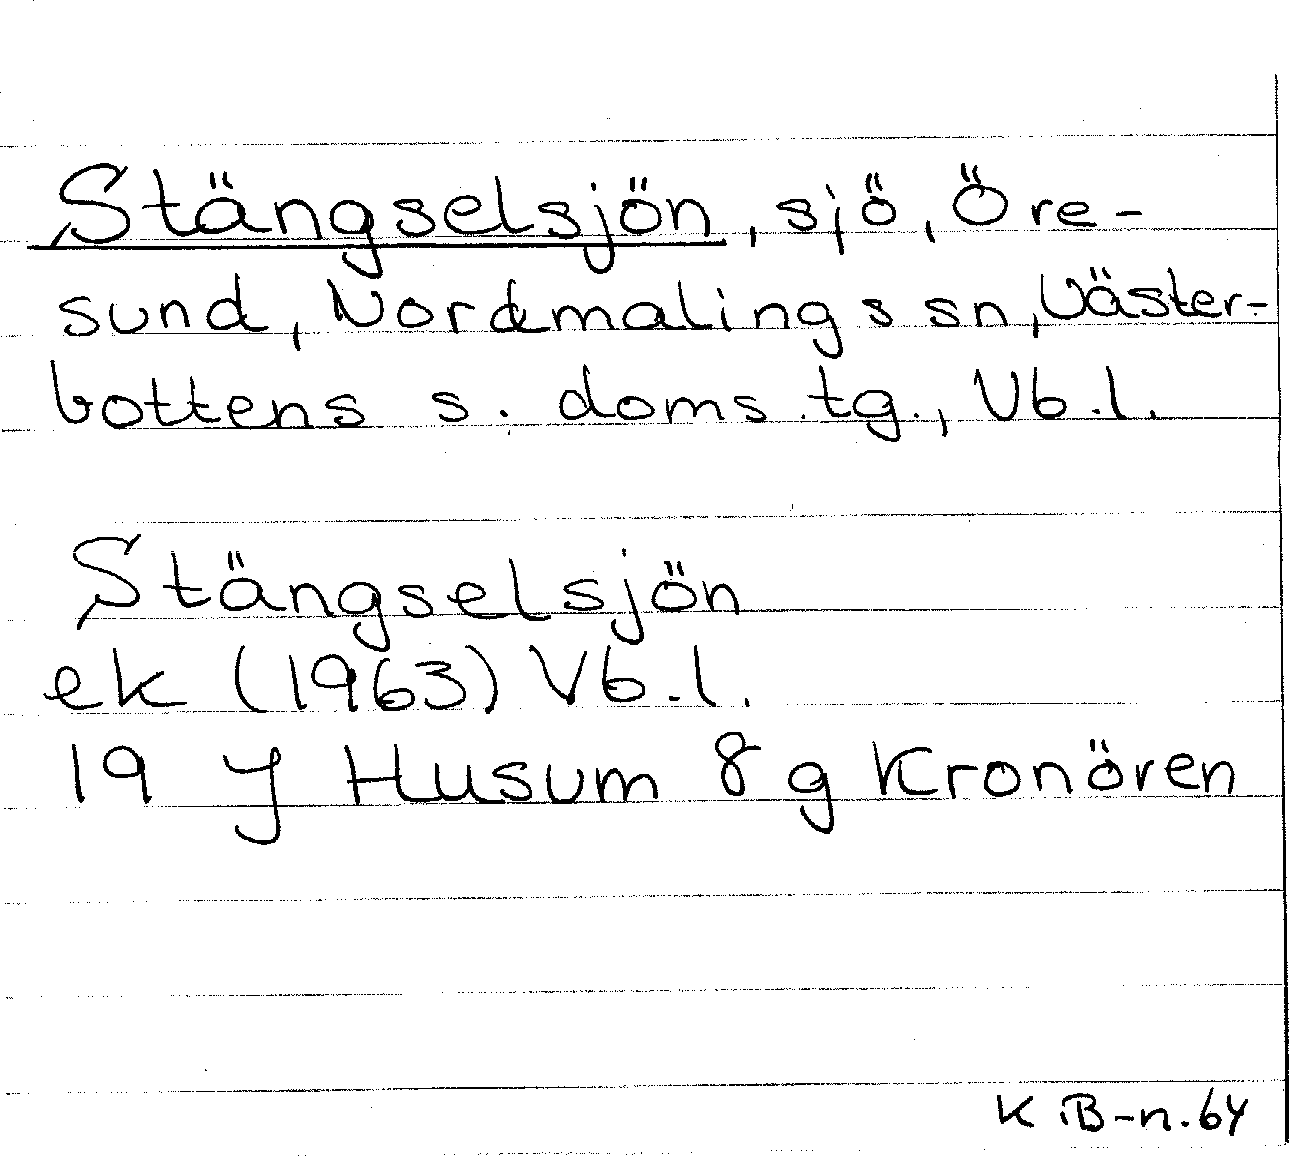 Stängselsjön, sjö, Öre-
sund, Nordmalings sn, Väster-
bottens s. doms.tg., Vb.l.
Stängselsjön
ek (1963) Vb.l.
19 J Husum 8 g Kronören
K B-n. 64